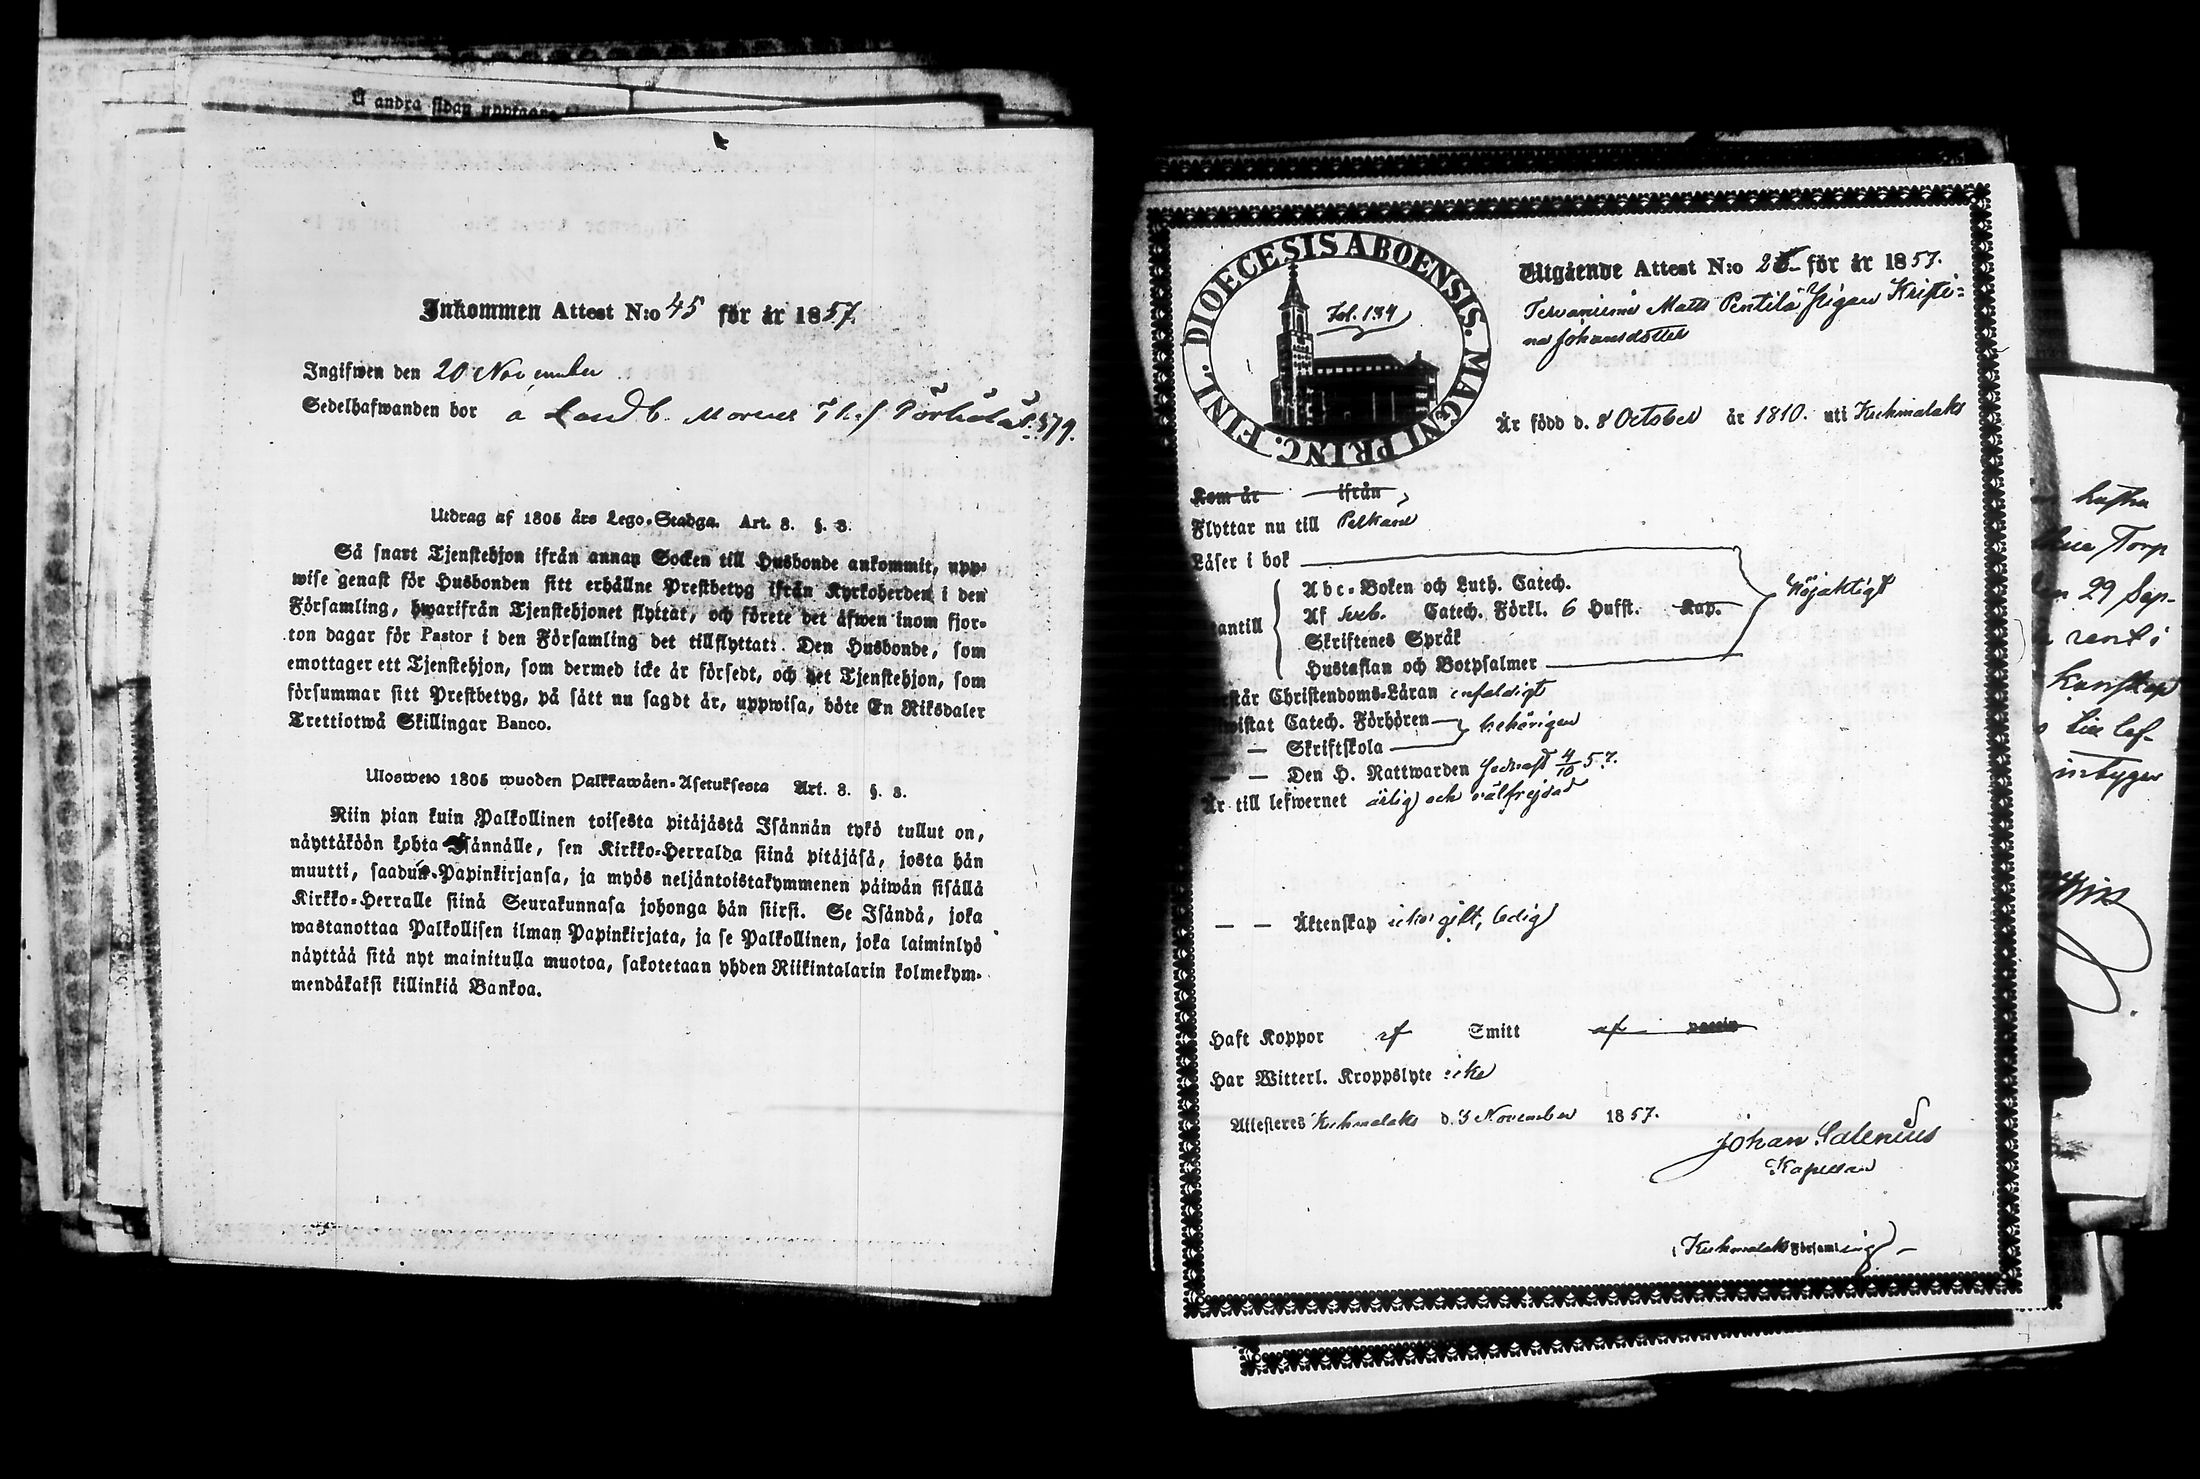 Å andra sidan upptages
Inkommen Attest N:o 45 för år 1857.
Ingifwen den 20 November
Sedelhafwanden bor å Landb.
Utdrag af 1805 års Lego-Stadga. Art. 8. §. 3.
Så snart Tjenstehjon ifrån annan Socken till Husbonde ankommit, upp-
wise genast för Husbonden sitt erhållne Prestbetyg ifrån Kyrkoherden i den
Församling, hwarifrån Tjenstehjonet flyttat, och förete det äfwen inom fjor-
ton dagar för Pastor i den Församling det tillflyttat: Den Husbonde, som
emottager ett Tjenstehjon, som dermed icke är försedt, och det Tjenstehjon, som
försummar sitt Prestbetyg, på sätt nu sagdt är, uppwisa, böte En Riksdaler
Trettiotwå Skillingar Banco.
Ulosweto 1805 wuoden Palkkawäen-Asetuksesta Art. 8. §. 3.
Niin pian kuin Palkollinen toisesta pitäjästä Isännän tykö tullut on,
näyttäköön kohta Isännälle, sen Kirkko-Herralda siinä pitäjäsä, josta hän
muutti, saadun Papinkirjansa, ja myös neljäntoistakymmenen päiwän sisällä
Kirkko-Herralle siinä Seurakunnasa johonga hän siirsi. Se Isändä, joka
wastanottaa Palkollisen ilman Papinkirjata, ja se Palkollinen, joka laiminlyö
näyttää sitä nyt mainitulla muotoa, sakotetaan yhden Riikintalarin kolmekym-
mendäkaksi killinkiä Bankoa.
DIOECESIS ABOENSIS. MAGNI PRINC. FINL.
Fol. 134
Utgående Attest N:o för år 1857.
Matts Pentilä Pigan Kristi-
na Johansdotter
Är född d. 8 October år 1810. uti Kuhmalaks
Kom år ifrån
Flyttar nu till Pelkäne
Läser i bok
Abc-Boken och Luth. Catech.
antill Af Sveb. Catech. Förkl. 6 Hufst. Kap. Nöjaktigt
Skriftenes Språk
Hustaflan och Botpsalmer
står Christendoms-Läran enfaldigt
wistat Catech. Förhören behörigen
— Skriftskola
— — Den H. Nattwarden sednast 4/10 57.
Är till lefwernet ärlig och välfrejdad
— — Äktenskap icke gift, ledig
Haft Koppor af Smitt af vaccin
Har Witterl. Kroppslyte icke
Attesteres Kuhmalaks d. 3 November 1857.
Johan Salenius
Kapellan
Kuhmalaks Församling
29 Sep-
rent i
Kunskap
intygar